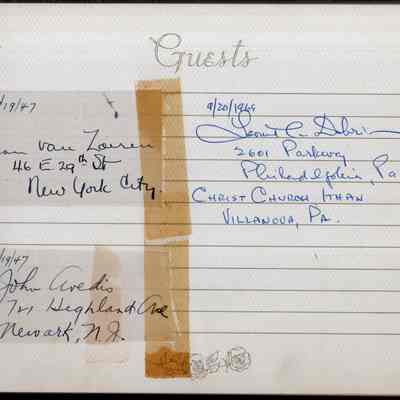 Guests
/19/47
van Loenen
46 E. 29th St
New York City.
/19/47
John Avedis
721 Highland Ave
Newark, N.J.
9/20/1969
2601 Parkway
Philadelphia, Pa
Christ Church Ithan
Villanova, Pa.